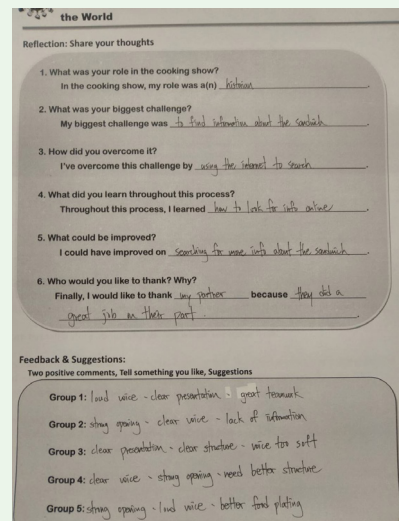 the World
Reflection: Share your thoughts
1. What was your role in the cooking show?
In the cooking show, my role was a(n) histrian.
2. What was your biggest challenge?
My biggest challenge was to find information about the sandwich.
3. How did you overcome it?
I've overcome this challenge by using the internet to search.
4. What did you learn throughout this process?
Throughout this process, I learned how to look for info online.
5. What could be improved?
I could have improved on searching for more info about the sandwich.
6. Who would you like to thank? Why?
Finally, I would like to thank my partner because they did a
great job on their part.
Feedback & Suggestions:
Two positive comments, Tell something you like, Suggestions
Group 1: loud voice - clear presentation - great teamwork
Group 2: strong opening - clear voice - lack of information
Group 3: clear presentation - clear structure - voice too soft
Group 4: clear voice - strong opening - need better structure
Group 5: strong opening - loud voice - better food plating